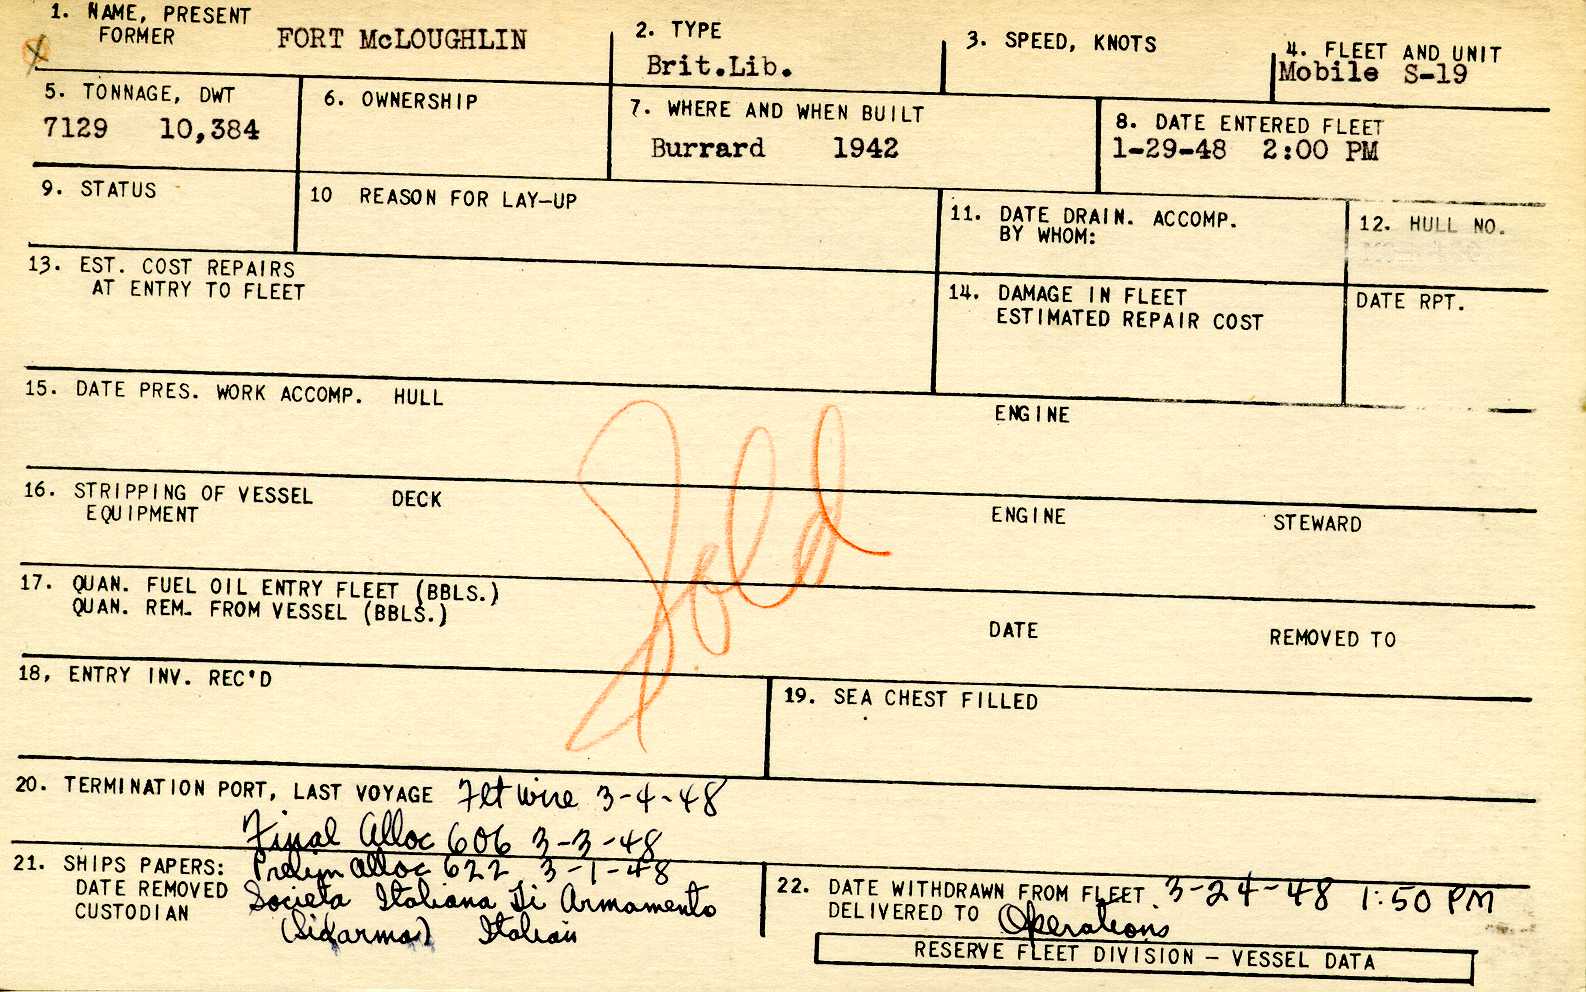 1. NAME, PRESENT
FORMER FORT McLOUGHLIN
2. TYPE
Brit.Lib.
3. SPEED, KNOTS
4. FLEET AND UNIT
Mobile S-19
5. TONNAGE, DWT
7129 10,384
6. OWNERSHIP
7. WHERE AND WHEN BUILT
Burrard 1942
8. DATE ENTERED FLEET
1-29-48 2:00 PM
9. STATUS
10 REASON FOR LAY-UP
11. DATE DRAIN. ACCOMP.
BY WHOM:
12. HULL NO.
13. EST. COST REPAIRS
AT ENTRY TO FLEET
14. DAMAGE IN FLEET
ESTIMATED REPAIR COST
DATE RPT.
15. DATE PRES. WORK ACCOMP. HULL ENGINE
Sold
16. STRIPPING OF VESSEL DECK ENGINE STEWARD
EQUIPMENT
17. QUAN. FUEL OIL ENTRY FLEET (BBLS.)
QUAN. REM. FROM VESSEL (BBLS.) DATE REMOVED TO
18, ENTRY INV. REC'D
19. SEA CHEST FILLED
20. TERMINATION PORT, LAST VOYAGE Flt wire 3-4-48
Final Alloc 606 3-3-48
21. SHIPS PAPERS: Prelim alloc 622 3-1-48
DATE REMOVED Societa Italiana Di Armamento
CUSTODIAN (Sidarma) Italian
22. DATE WITHDRAWN FROM FLEET. 3-24-48 1:50 PM
DELIVERED TO Operations
RESERVE FLEET DIVISION – VESSEL DATA